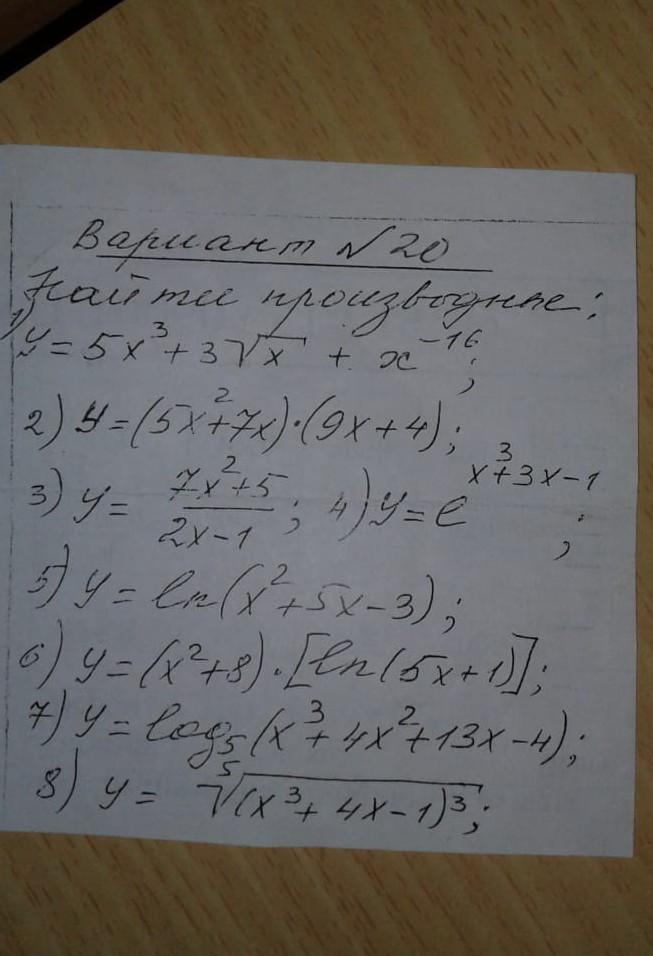 Вариант №20
Найти производные:
1) y = 5x³ + 3√x + x⁻¹⁶;
2) y = (5x² + 7x)·(9x + 4);
3) y = (7x² + 5)/(2x - 1); 4) y = e^(x³ + 3x - 1);
5) y = ln(x² + 5x - 3);
6) y = (x² + 8)·[ln(5x + 1)];
7) y = log₅(x³ + 4x² + 13x - 4);
8) y = ⁵√((x³ + 4x - 1)³);